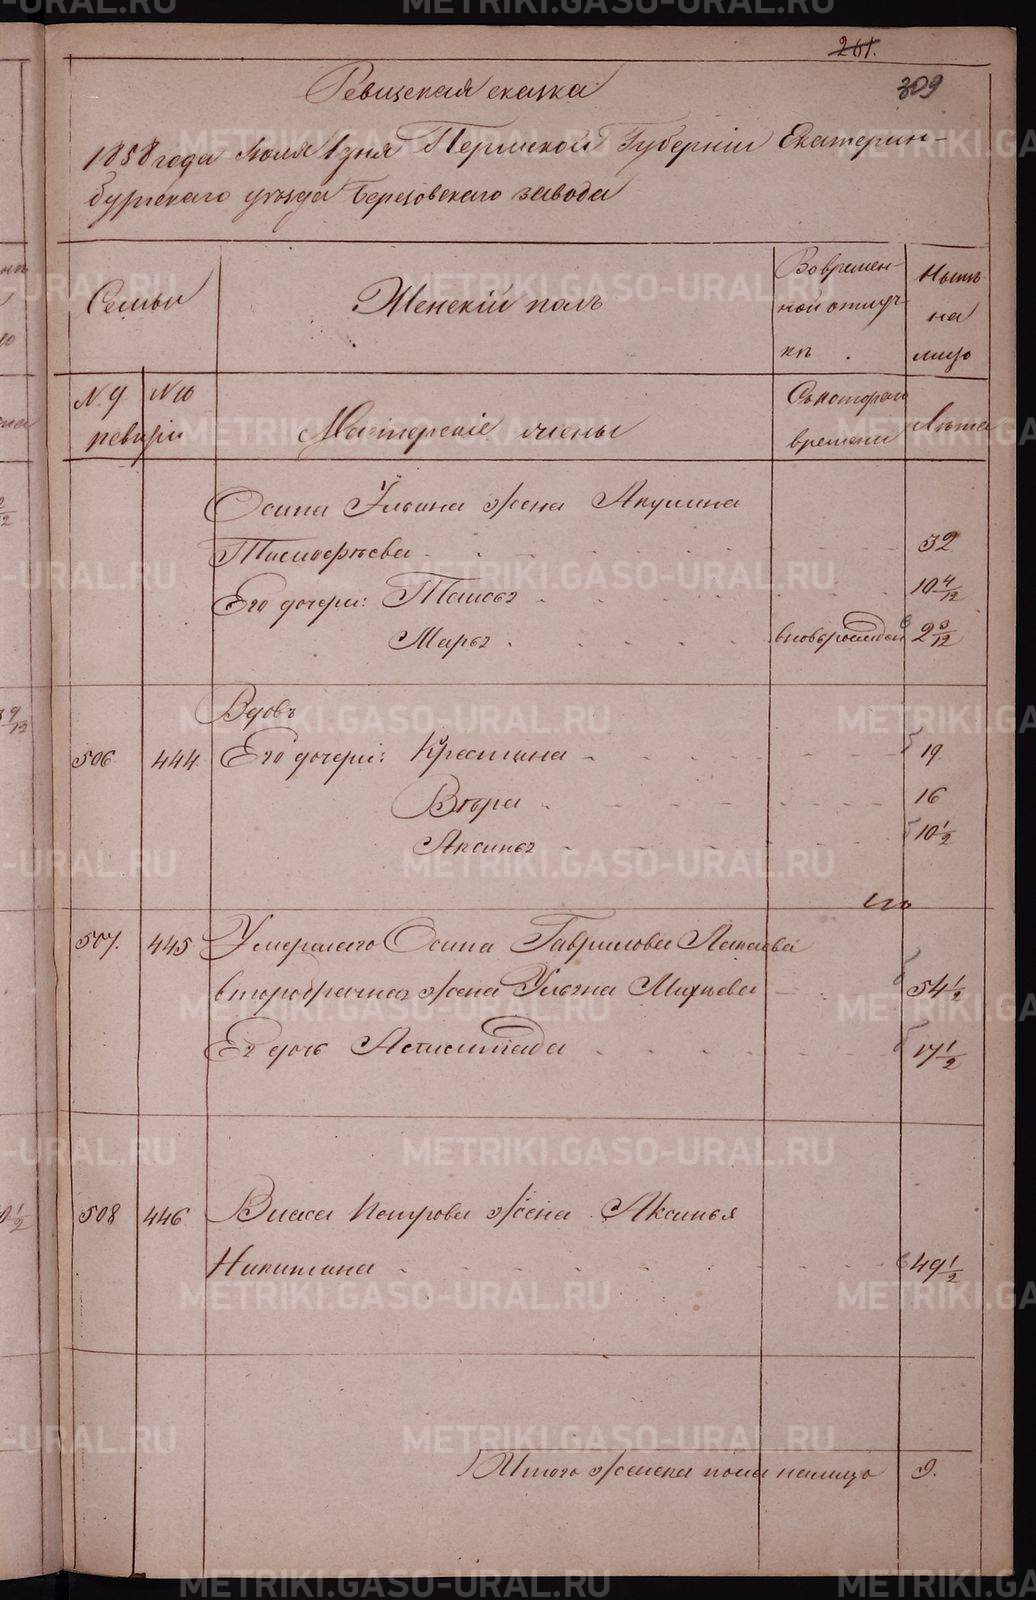 261.
309
Ревизская сказка
1858 года Июля 1 дня Пермской Губернiи Екатерин-
бургскаго уѣзда Березовскаго завода
Семьи
Женскiй полъ
Вовремен-
ной отлуч
кѣ.
Нынѣ
на
лицо
№ 9 № 10
ревизiи
Мастерскiе члены
Съкотораго
времени
Лѣта
Осипа Ильина жена Акулина
Тимофѣева 32
Его дочери: Таисья 10 4/12
Марья вновьрожден 2 3/12
Вдовъ
506 444. Его дочери: Крестина 19.
Вѣра 16
Аксинья 10 1/2
его
507. 445 Умершаго Осипа Гаврилова
второбрачная жена Ульяна 54 1/2
Ея дочь 17 1/2
508 446 Власа Петрова жена Аксинья
Никитина 49 1/2
Итого женска пола налицо 9.
METRIKI.GASO-URAL.RU